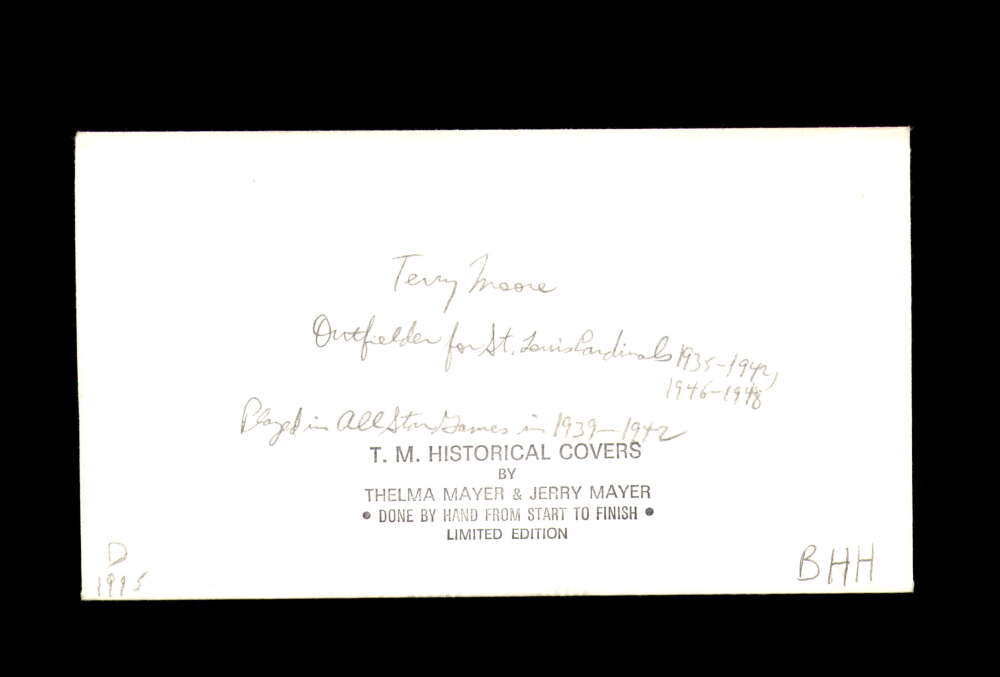 Terry Moore
Outfielder for St. Louis Cardinals 1935-1942,
1946-1948
Played in All Star Games in 1939-1942
T. M. HISTORICAL COVERS
BY
THELMA MAYER & JERRY MAYER
• DONE BY HAND FROM START TO FINISH •
LIMITED EDITION
D
1995
BHH